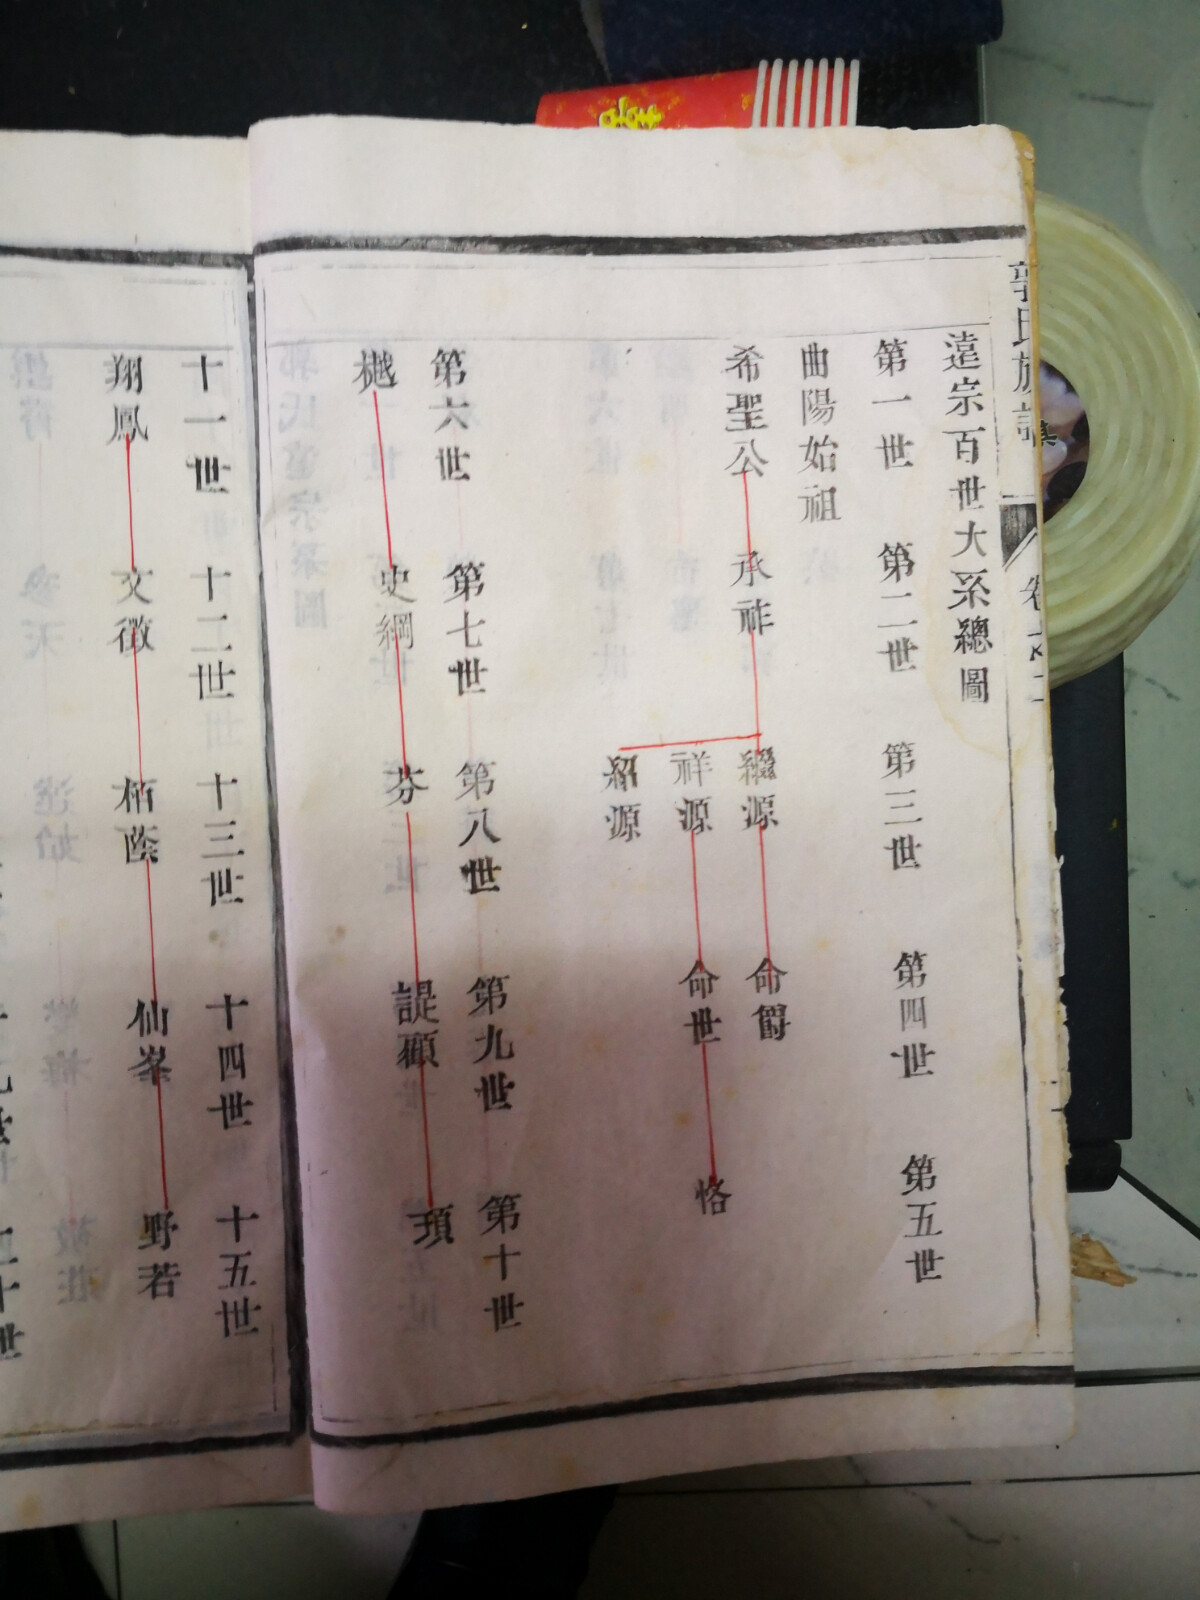 郭氏族譜
卷之二
遠宗百世大系總圖
第一世 第二世 第三世 第四世 第五世
曲陽始祖
希聖公 承祚 繼源 命爵
祥源 命世 恪
紹源
第六世 第七世 第八世 第九世 第十世
樾 史綱 芬 諟顧 頊
十一世 十二世 十三世 十四世 十五世
翔鳳 文徵 栢蔭 仙峯 野若